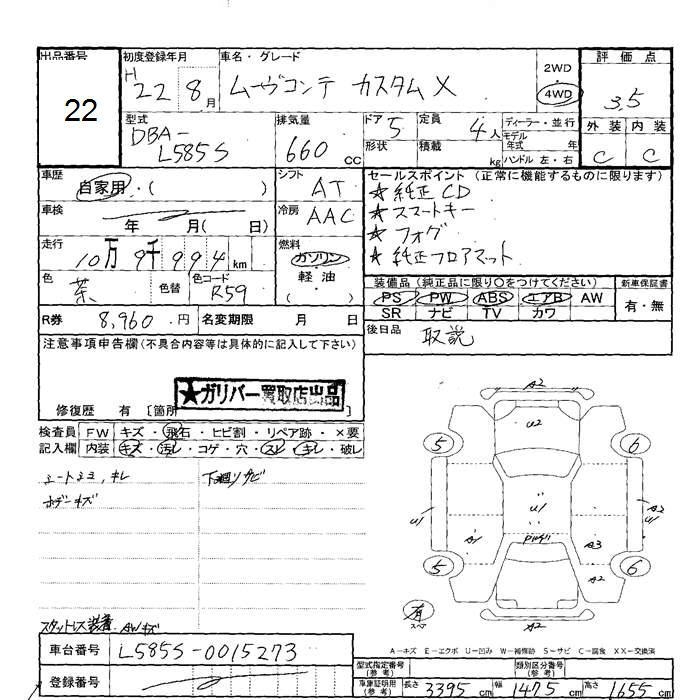 出品番号 初度登録年月 車名・グレード 評価点
22 H22 8月 ムーヴコンテ カスタムX 2WD・4WD 3.5
型式 排気量 ドア 定員 ディーラー・並行 外装 内装
DBA-L585S 660cc 5 4人 モデル年式 年 C C
形状 積載 kg ハンドル 左・右
車歴 自家用・( ) シフト AT セールスポイント (正常に機能するものに限ります)
★純正CD
車検 年 月( 日) 冷房 AAC ★スマートキー
★フォグ
走行 10万9千994km 燃料 ガソリン・軽油・( ) ★純正フロアマット
色 茶 色替 色コード R59 装備品 (純正品に限り〇をつけてください) 新車保証書
PS PW ABS エアB AW 有・無
SR ナビ TV カワ
R券 8,960.円 名変期限 月 日 後日品 取説
注意事項申告欄 (不具合内容等は具体的に記入して下さい)
★ガリバー買取店出品
修復歴 有 [箇所 ]
検査員 FW キズ・飛石・ヒビ割・リペア跡・×要
記入欄 内装 キズ・汚レ・コゲ・穴・スレ・キレ・破レ
シートシミ、キレ 下回リサビ
ボデーキズ
A2
U2
5 6
U1 U1 A2 U1
A1 A3
5 A2 6
有 スペア A2
スタットレス装着 AWキズ
車台番号 L585S-0015273
A-キズ E-エクボ U-凹み W-補修跡 S-サビ C-腐食 XX-交換済
登録番号
型式指定番号(参考) 類別区分番号(参考)
車庫証明用(参考) 長さ 3395cm 幅 1475cm 高さ 1655cm